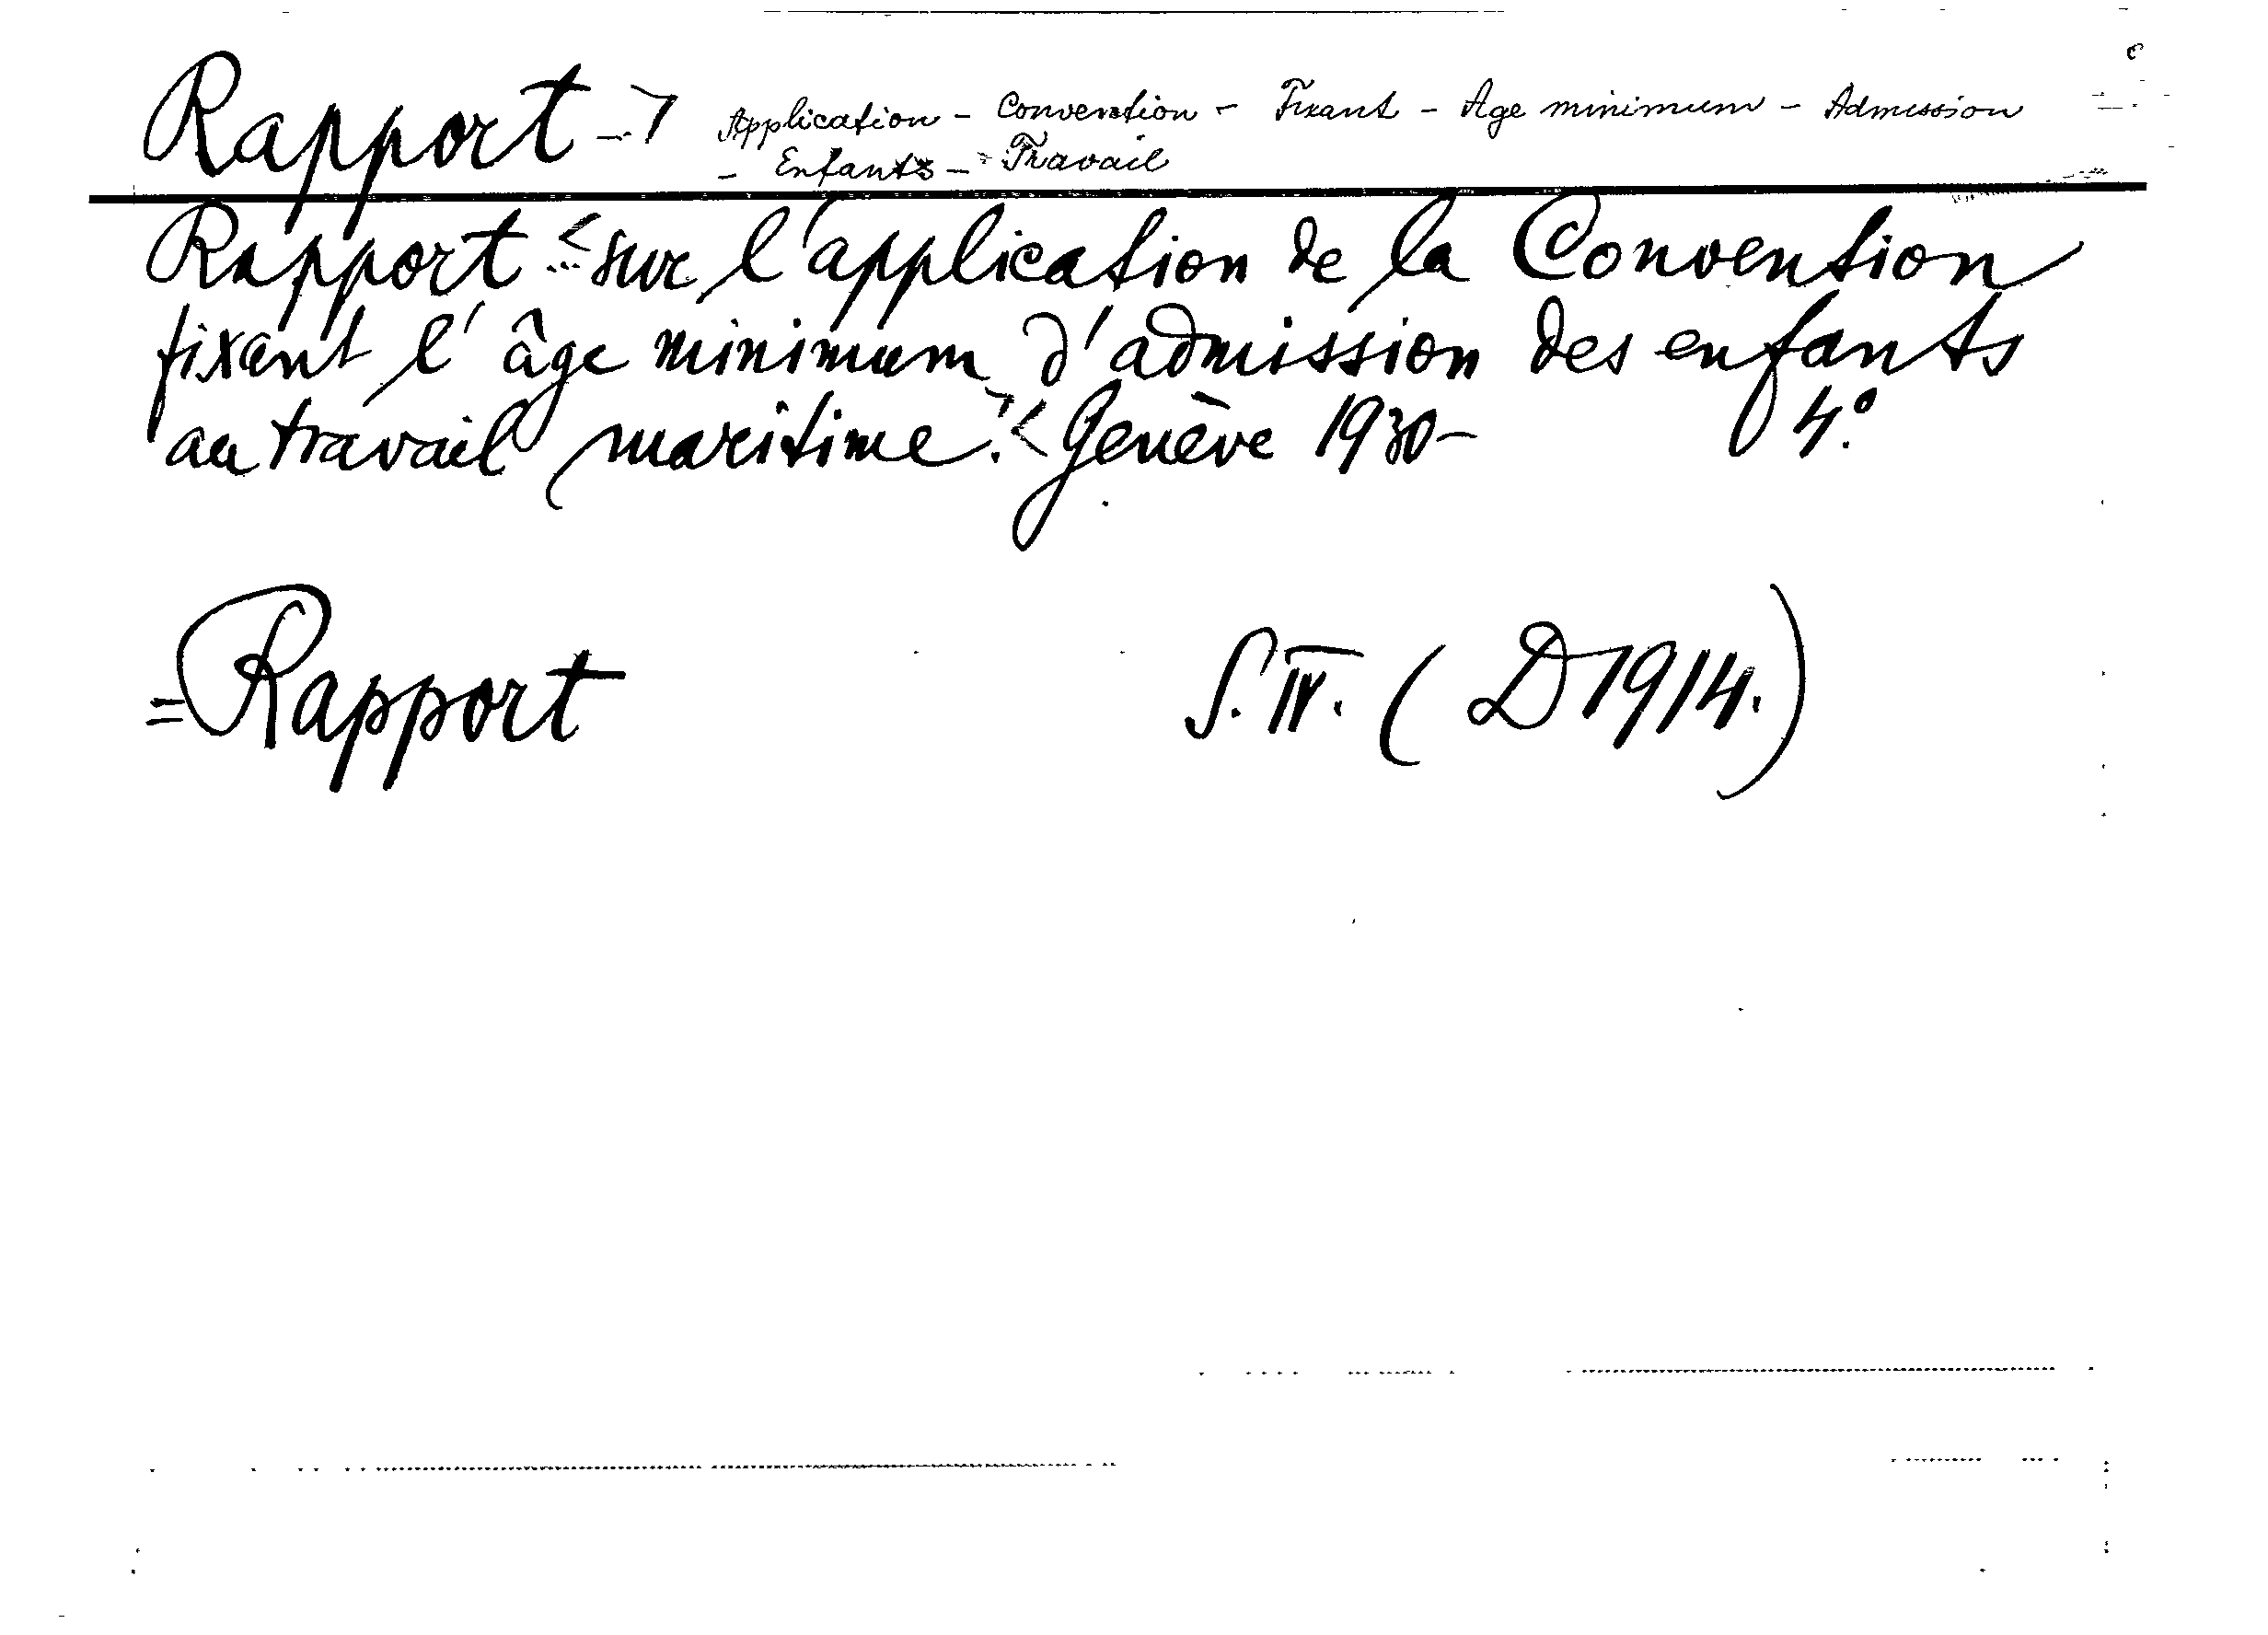 Rapport - Application - Convention - Fixant - Age minimum - Admission
- Enfants - Travail
Rapport < sur l'application de la Convention
fixant l'âge minimum d'admission des enfants
au travail maritime.> < Genève 1930- 4.º
=Rapport S. IV. (D1914.)